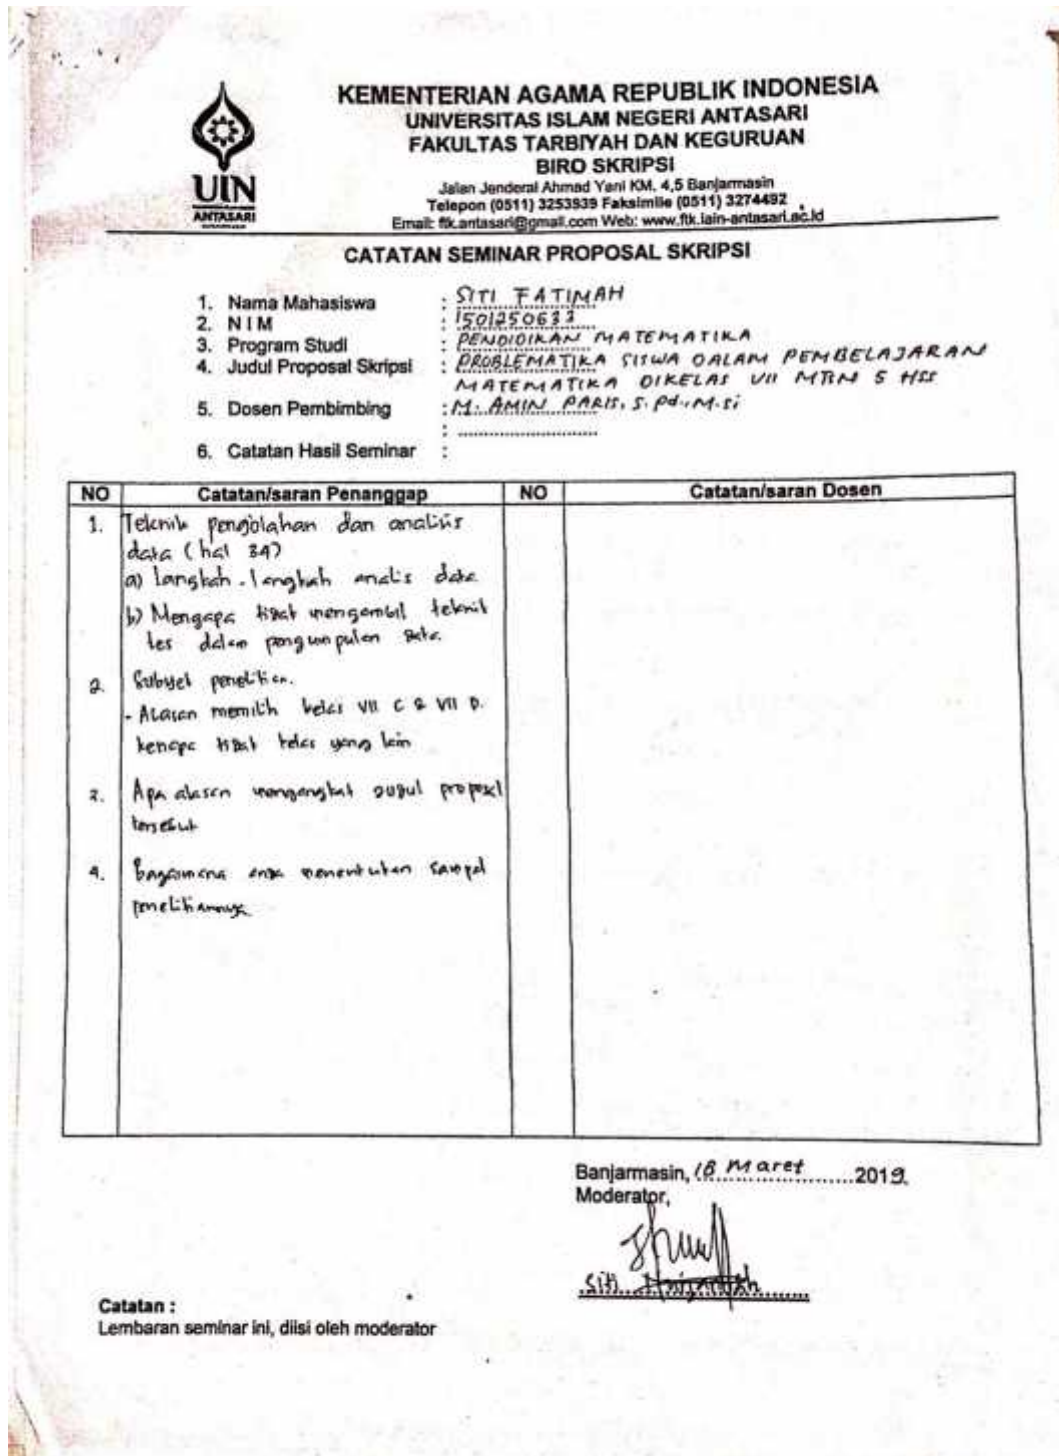 UIN
ANTASARI
KEMENTERIAN AGAMA REPUBLIK INDONESIA
UNIVERSITAS ISLAM NEGERI ANTASARI
FAKULTAS TARBIYAH DAN KEGURUAN
BIRO SKRIPSI
Jalan Jenderal Ahmad Yani KM. 4,5 Banjarmasin
Telepon (0511) 3253939 Faksimile (0511) 3274492
Email: ftk.antasari@gmail.com Web: www.ftk.iain-antasari.ac.id
CATATAN SEMINAR PROPOSAL SKRIPSI
1. Nama Mahasiswa : SITI FATIMAH
2. N I M : 1501250633
3. Program Studi : PENDIDIKAN MATEMATIKA
4. Judul Proposal Skripsi : PROBLEMATIKA SISWA DALAM PEMBELAJARAN
MATEMATIKA DIKELAS VII MTSN 5 HSS
5. Dosen Pembimbing : M. AMIN PARIS, S.Pd., M.Si
: ............................
6. Catatan Hasil Seminar :
NO Catatan/saran Penanggap NO Catatan/saran Dosen
1. Teknik pengolahan dan analisis
data (hal 34)
a) langkah-langkah analis data
b) Mengapa tidak mengambil teknik
tes dalam pengumpulan data.
2. Subyek penelitian.
- Alasan memilih kelas VII C & VII D.
kenapa tidak kelas yang lain
3. Apa alasan mengangkat judul proposal
tersebut
4. Bagaimana anda menentukan sampel
penelitiannya
Banjarmasin, 18 Maret ............2019.
Moderator,
Siti
Catatan :
Lembaran seminar ini, diisi oleh moderator